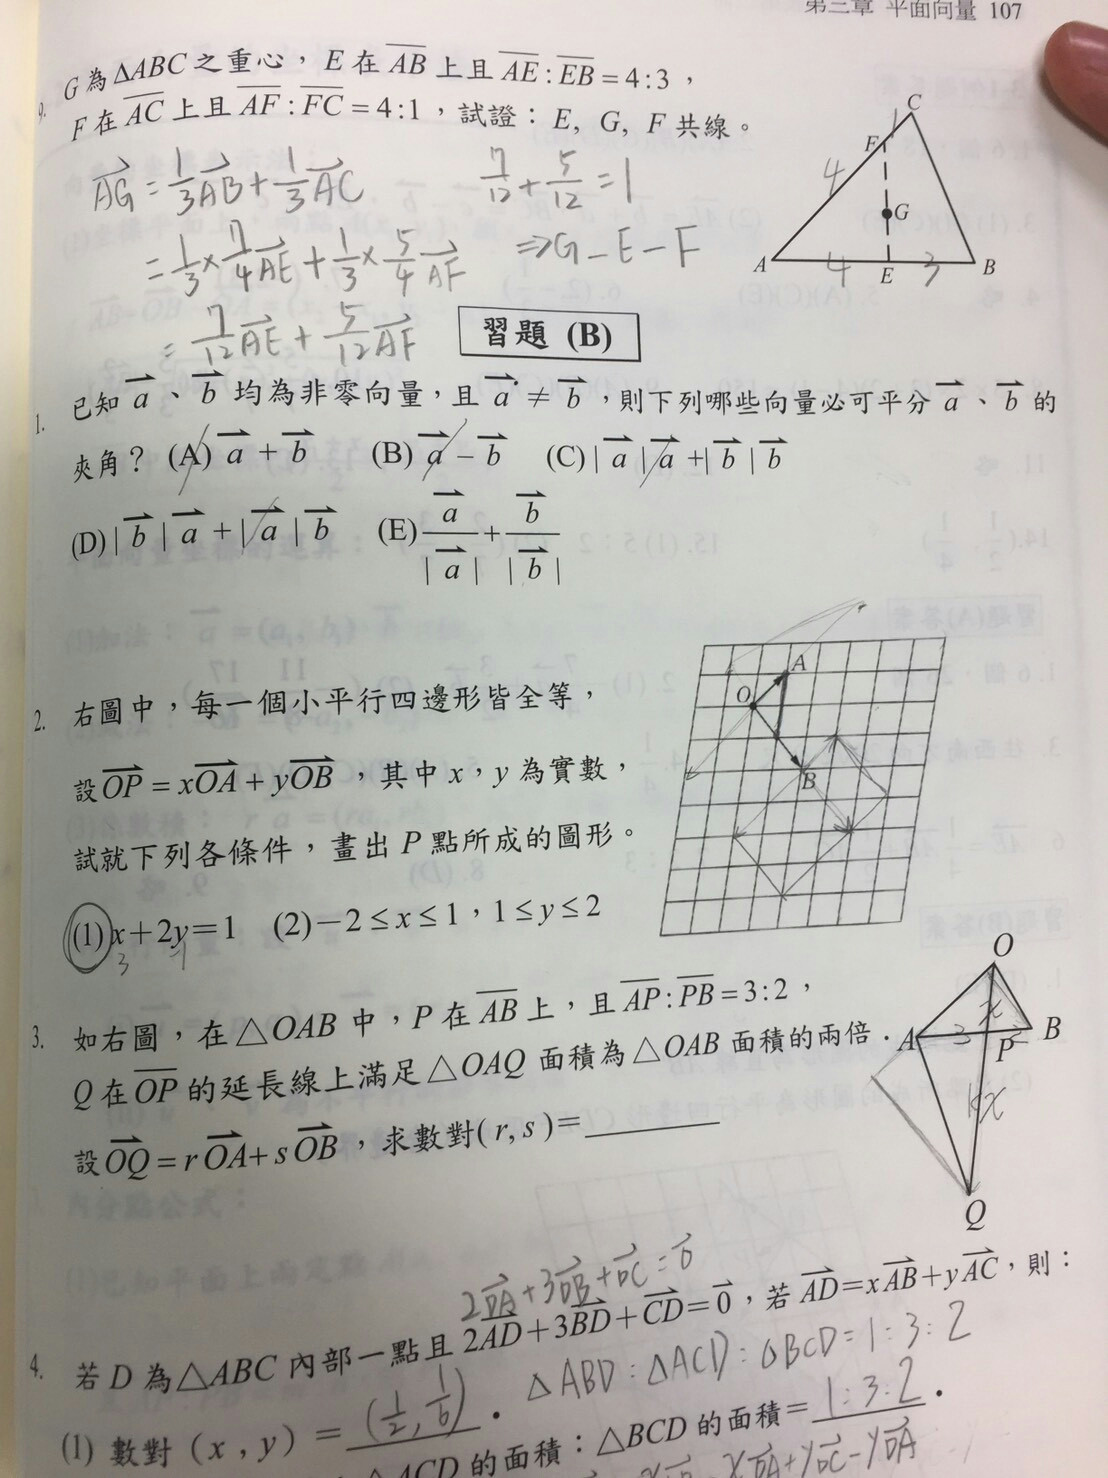 第三章 平面向量 107
9. G為ΔABC之重心，E在AB上且AE:EB=4:3，
F在AC上且AF:FC=4:1，試證：E, G, F共線。
AG = 1/3 AB + 1/3 AC
7/12 + 5/12 = 1
= 1/3 × 7/4 AE + 1/3 × 5/4 AF
⇒ G-E-F
= 7/12 AE + 5/12 AF
C
F
1
4
G
A
4
E
3
B
習題 (B)
1. 已知 a、b 均為非零向量，且 a ≠ b，則下列哪些向量必可平分 a、b 的
夾角？ (A) a + b (B) a − b (C) |a|a + |b|b
(D) |b|a + |a|b (E) a/|a| + b/|b|
2. 右圖中，每一個小平行四邊形皆全等，
設 OP = xOA + yOB，其中 x，y 為實數，
試就下列各條件，畫出 P 點所成的圖形。
(1) x+2y=1 (2) −2≤x≤1，1≤y≤2
3
A
O
B
3. 如右圖，在△OAB中，P在AB上，且AP:PB=3:2，
Q在OP的延長線上滿足△OAQ面積為△OAB面積的兩倍．
設OQ=rOA+sOB，求數對(r,s)=
O
x
A
3
P
2
B
x
Q
2DA+3DB+DC=0
4. 若D為△ABC內部一點且2AD+3BD+CD=0，若AD=xAB+yAC，則：
ΔABD:ΔACD:ΔBCD=1:3:2
(1) 數對 (x,y) = (1/2, 1/6)．
△ACD的面積：△BCD的面積= 1:3:2．
xDA+yDC-yDA